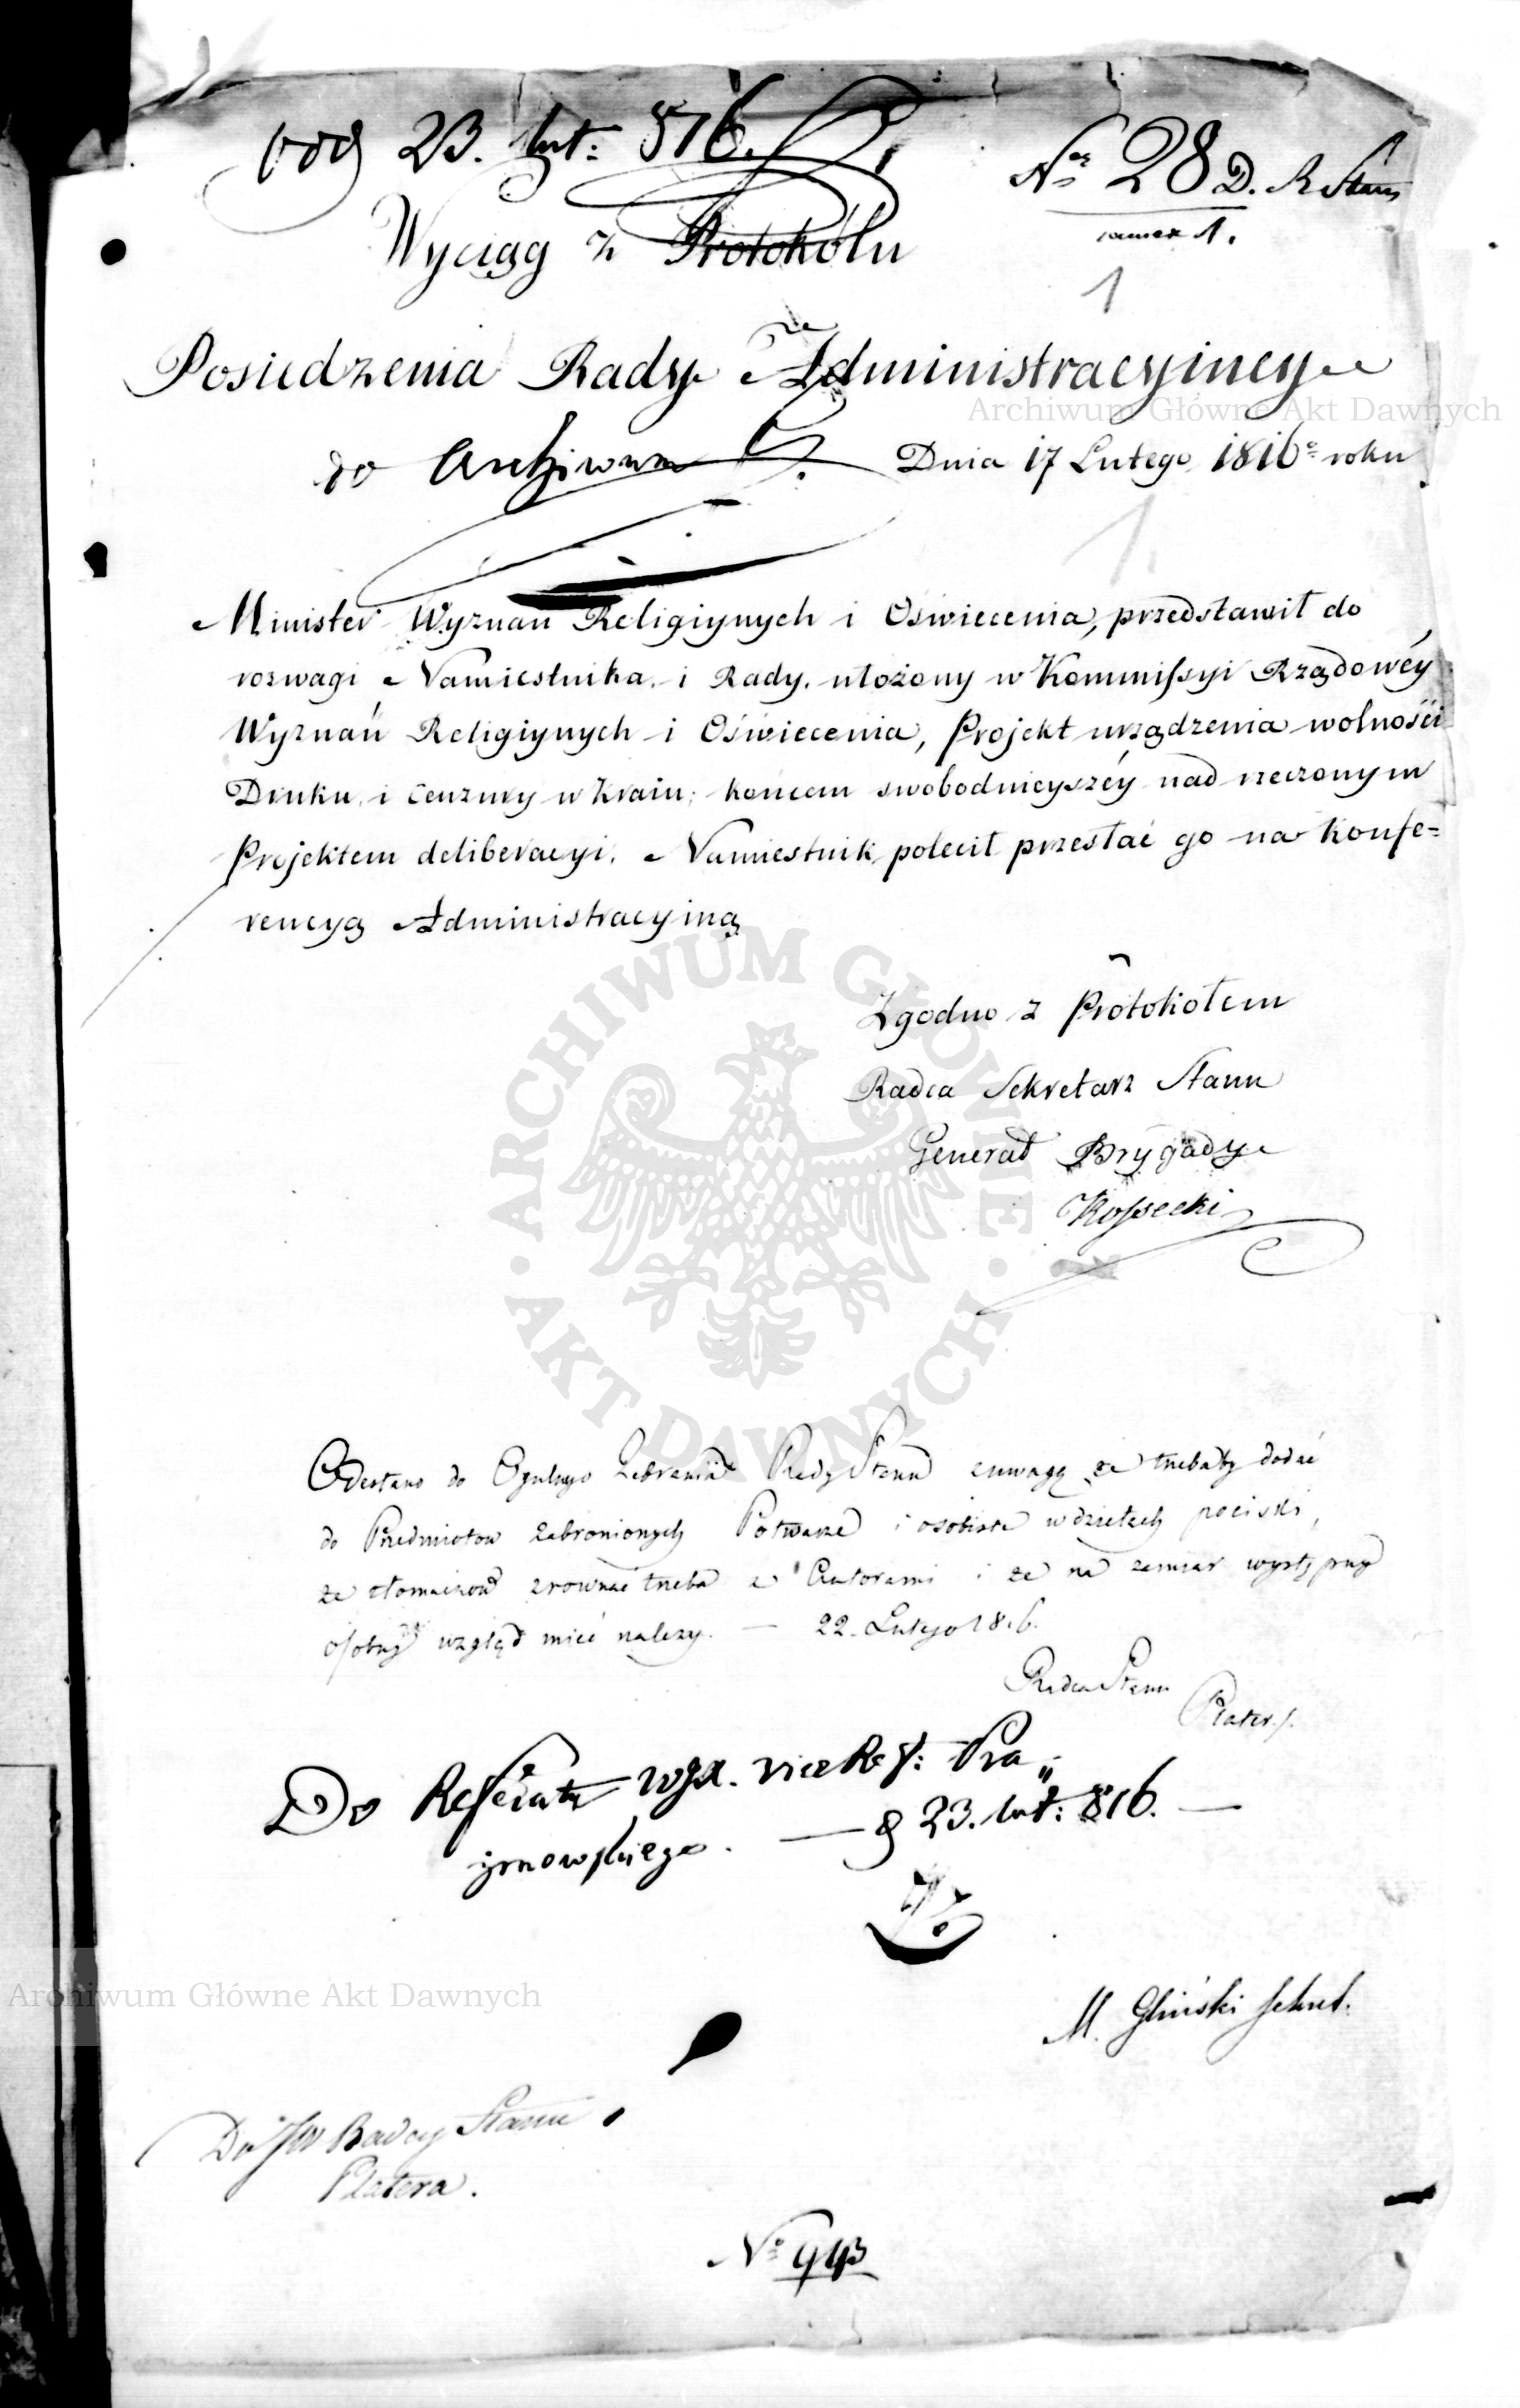 23. lut: 816.
Nr 28 D. R Stanu
1.
Wyciąg z Protokółu
1
Posiedzenia Rady Administracyiney
Archiwum Główne Akt Dawnych
do Archiwum Dnia 17 Lutego 1816o roku
1.
Minister Wyznań Religiynych i Oświecenia, przedstawił do
rozwagi Namiestnika i Rady, ułożony w Kommissyi Rządowéy
Wyznań Religiynych i Oświecenia, Projekt urządzenia wolności
Druku i Cenzury w Kraiu; końcem swobodnieyszéy nad rzeczonym
Projektem deliberacyi, Namiestnik polecił przesłać go na Konfe=
rencyą Administracyiną
Zgodno z Protokołem
Radca Sekretarz Stanu
Generał Brygady
Kossecki
ARCHIWUM GŁÓWNE AKT DAWNYCH
Odesłano do Ogulnego Zebrania Rady Stanu z uwagą że trzebaby dodać
do Przedmiotow zabronionych Potwarze i osobiste w dziełach pociski,
że tłomaczow zrownać trzeba z Autorami i że na zamiar występny
osobny wzgląd mieć należy. — 22. Lutego 1816.
Radca Stanu
Plater
Do Referatu Wgo. vice Ref: Pra„
żmowskiego. — d 23. lut: 816. —
M. Gliński Sekret.
Archiwum Główne Akt Dawnych
Do JW Radcy Stanu
Platera.
No 943